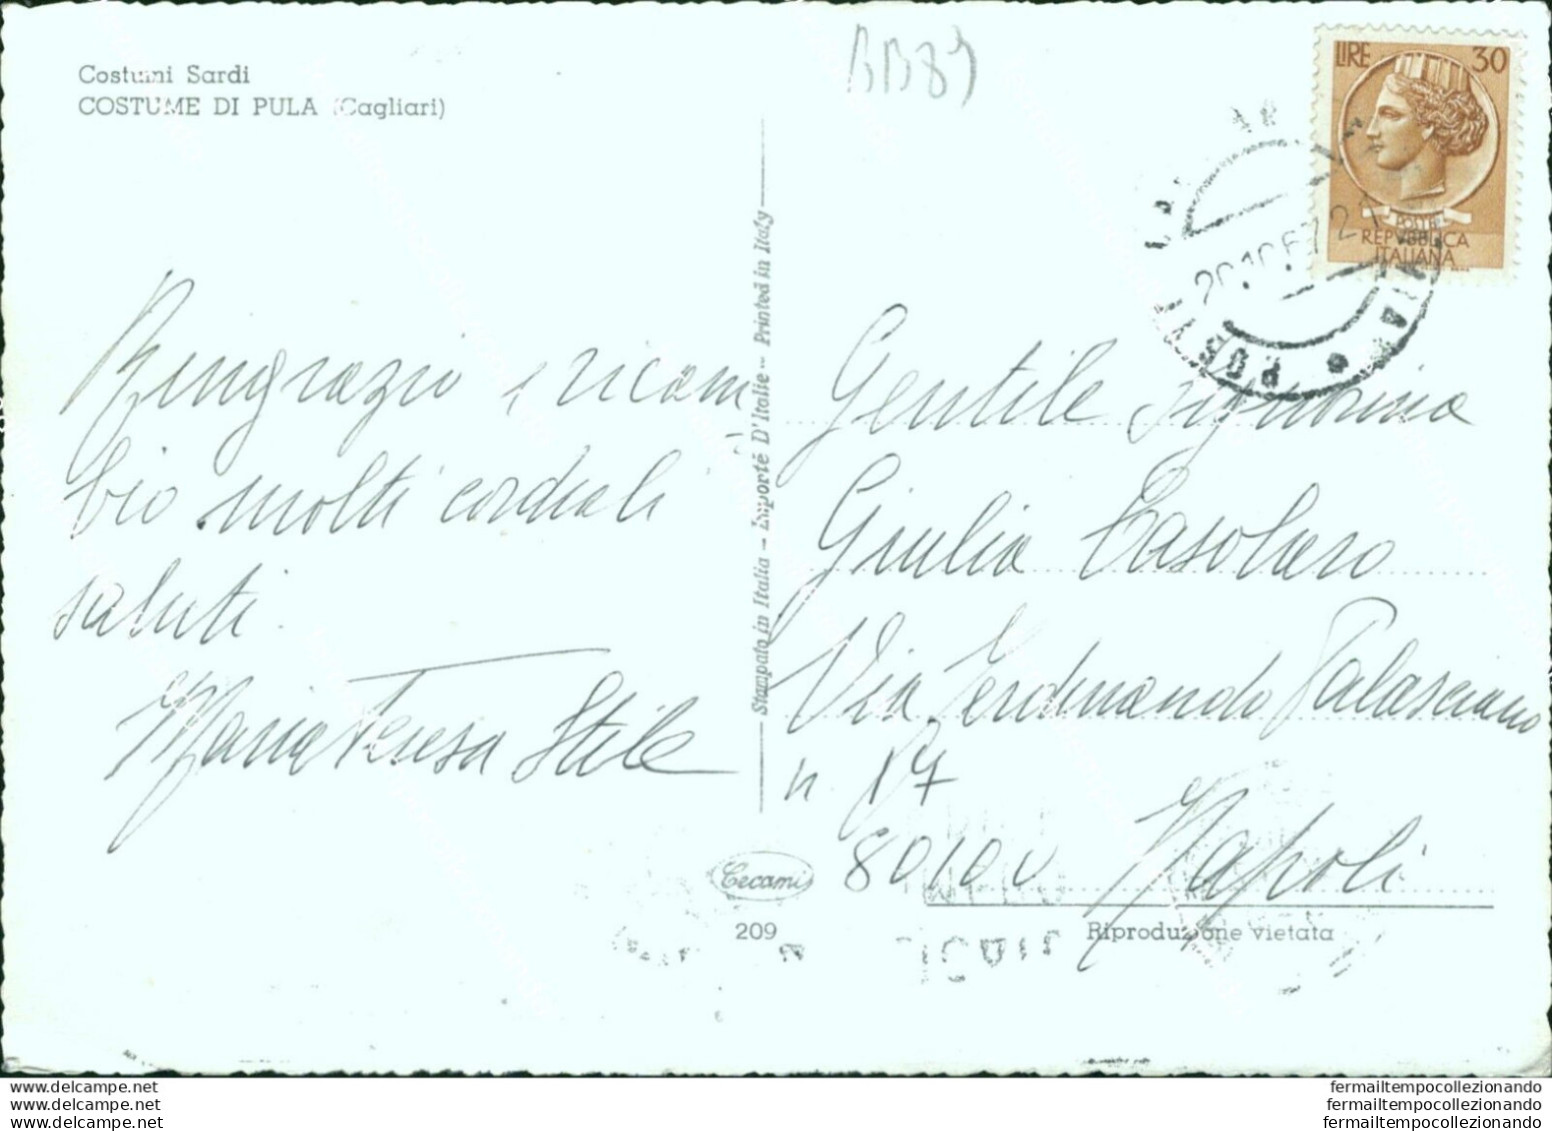 Costumi Sardi
COSTUME DI PULA (Cagliari)
BB89
LIRE 30
POSTE
REPVBBLICA
ITALIANA
20.10.67 21
Ringrazio e ricam
bio molti cordiali
saluti.
Maria Teresa Stile
Stampato in Italia - Importé D'Italie - Printed in Italy
Gentile Signorina
Giulia Casolaro
Via Ferdinando Palasciano
n. 17
80100 Napoli
Cecami
209
Riproduzione vietata
www.delcampe.net
www.delcampe.net
www.delcampe.net
fermailtempocollezionando
fermailtempocollezionando
fermailtempocollezionando